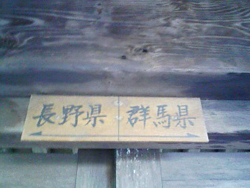 長野県 群馬県